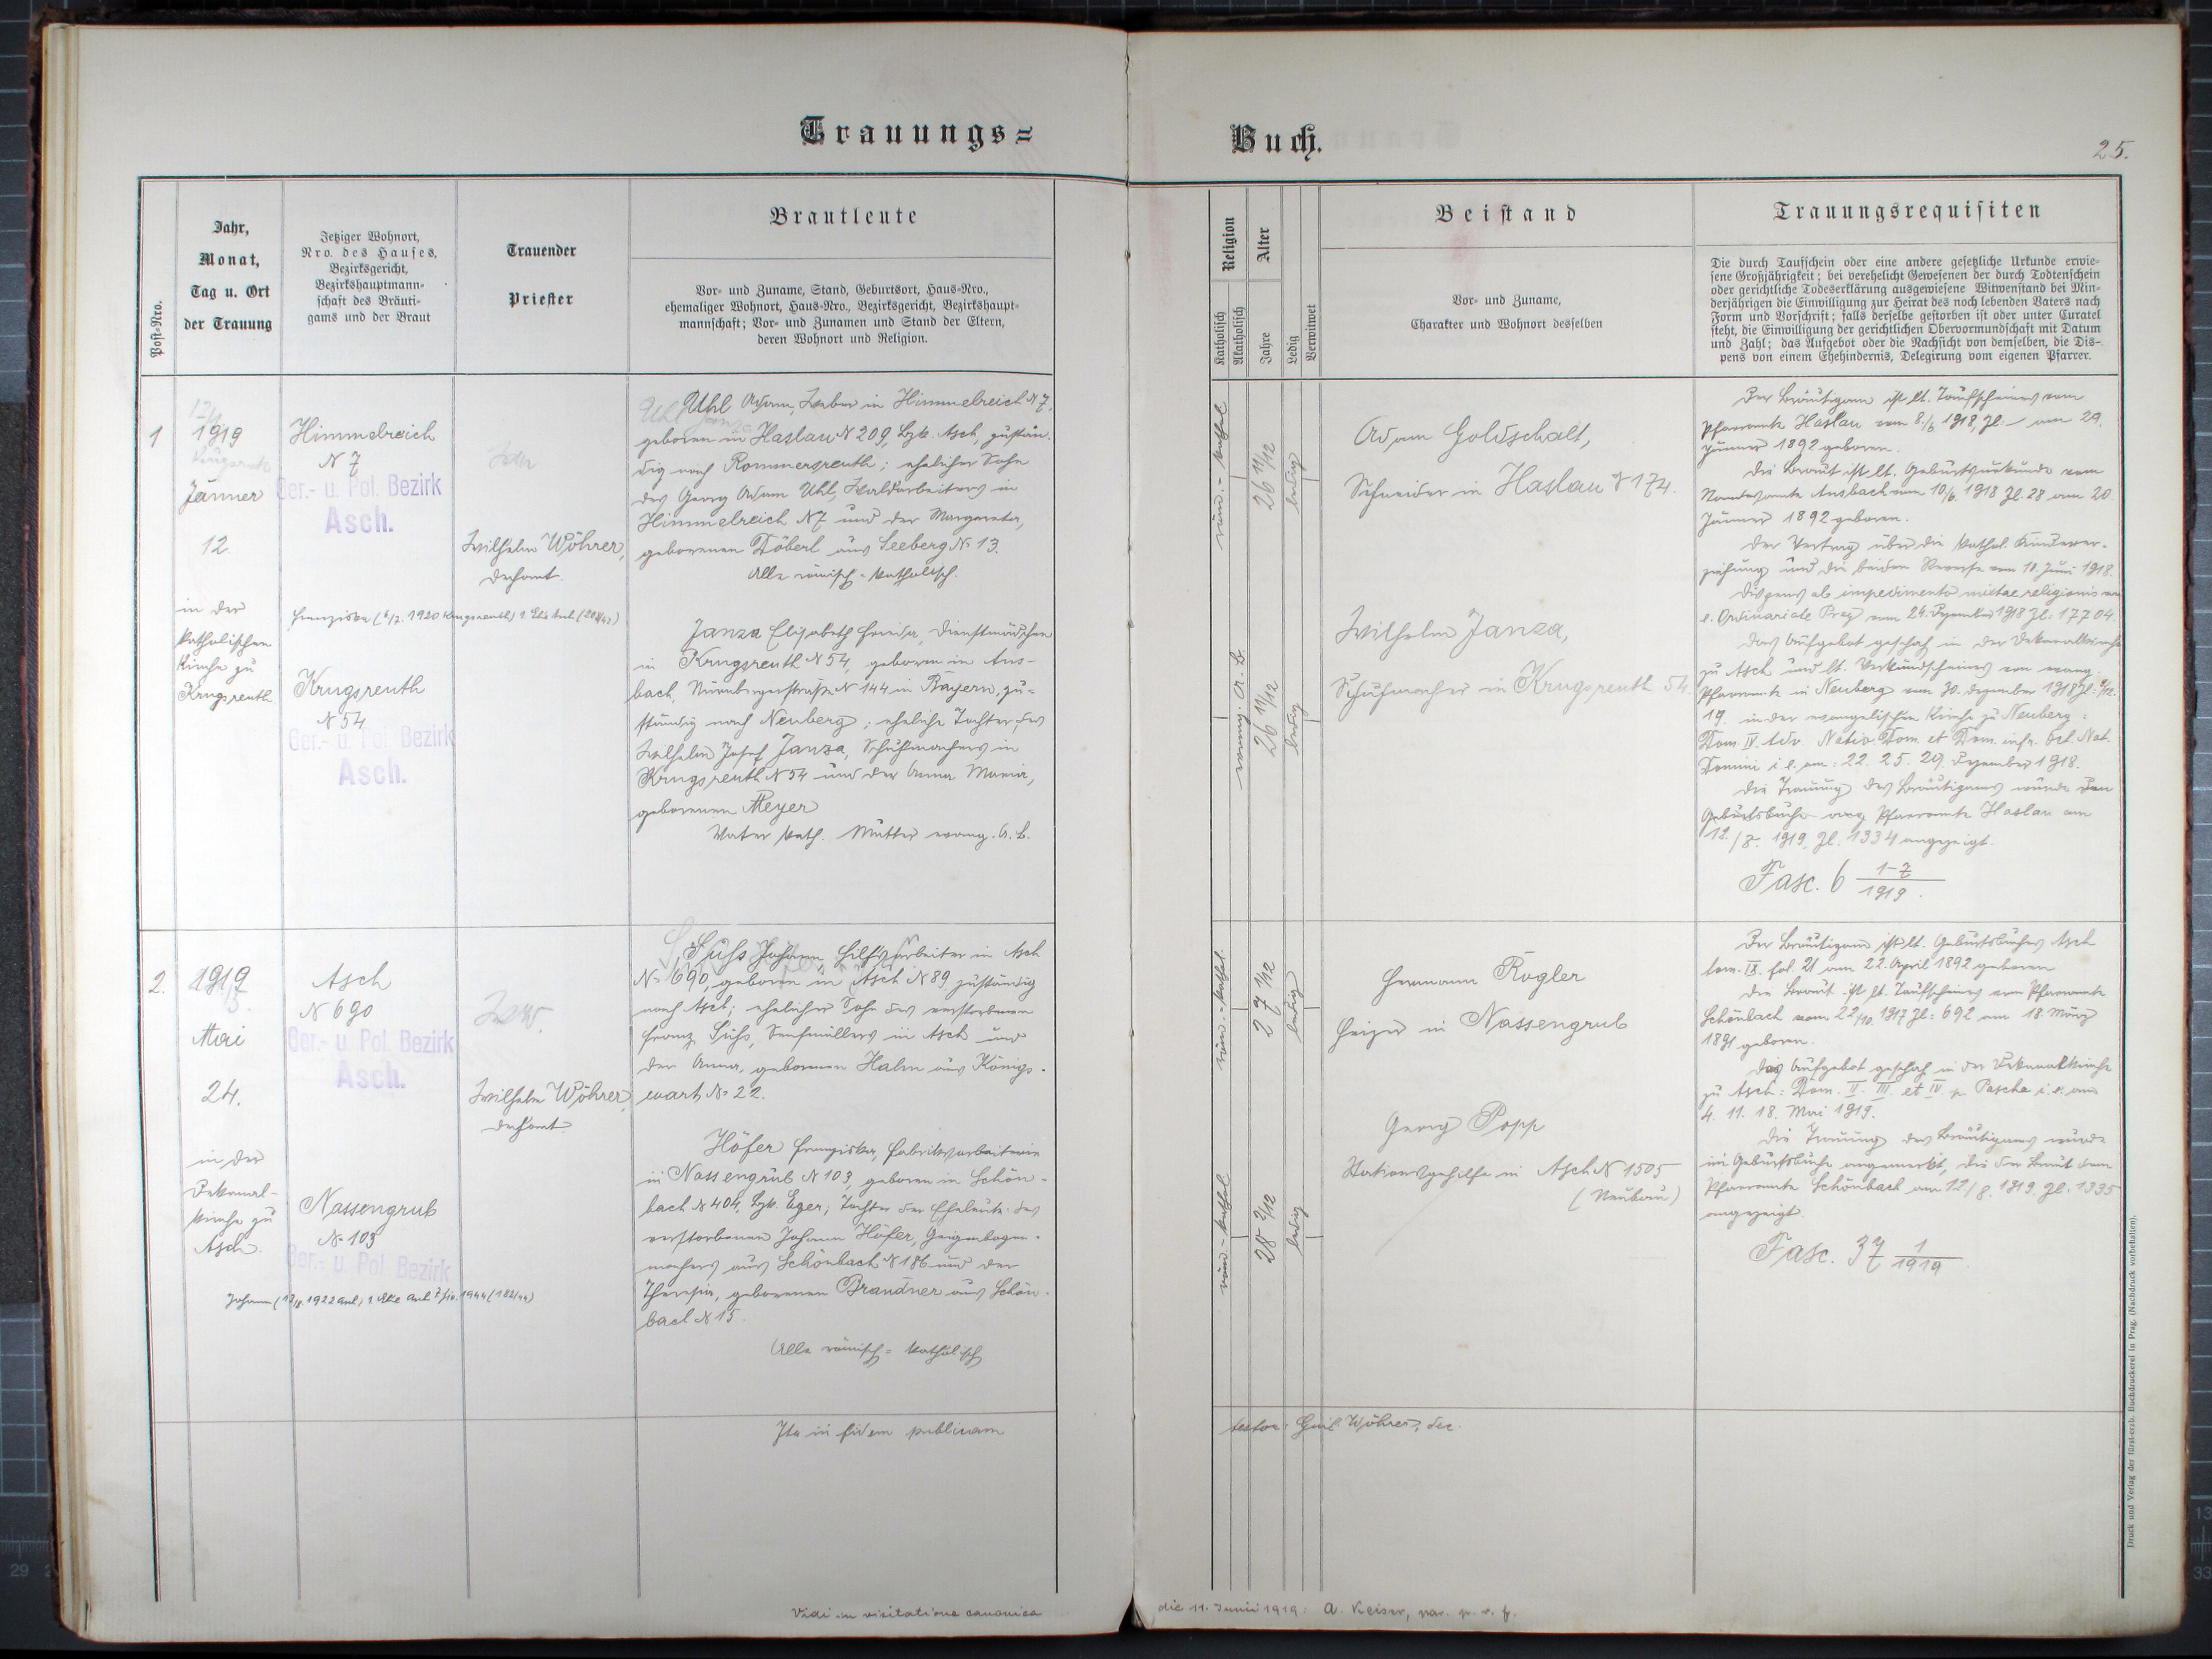 Trauungs=
Buch.
25.
Post-Nro.
Jahr,
Monat,
Tag u. Ort
der Trauung
Jetziger Wohnort,
Nro. des Hauses,
Bezirksgericht,
Bezirkshauptmann-
schaft des Bräuti-
gams und der Braut
Trauender
Priester
Brautleute
Vor- und Zuname, Stand, Geburtsort, Haus-Nro.,
ehemaliger Wohnort, Haus-Nro., Bezirksgericht, Bezirkshaupt-
mannschaft; Vor- und Zunamen und Stand der Eltern,
deren Wohnort und Religion.
Religion
Katholisch
Akatholisch
Alter
Jahre
Ledig
Verwitwet
Beistand
Vor- und Zuname,
Charakter und Wohnort desselben
Trauungsrequisiten
Die durch Taufschein oder eine andere gesetzliche Urkunde erwie-
sene Großjährigkeit; bei verehelicht Gewesenen der durch Todtenschein
oder gerichtliche Todeserklärung ausgewiesene Witwenstand bei Min-
derjährigen die Einwilligung zur Heirat des noch lebenden Vaters nach
Form und Vorschrift; falls derselbe gestorben ist oder unter Curatel
steht, die Einwilligung der gerichtlichen Obervormundschaft mit Datum
und Zahl; das Aufgebot oder die Nachsicht von demselben, die Dis-
pens von einem Ehehindernis, Delegirung vom eigenen Pfarrer.
1
1919
Jänner
12.
in der
katholischen
Kirche zu
Krugsreuth
Himmelreich
N 7
Ger.- u. Pol. Bezirk
Asch.
Franziska (6/7. 1920 Krugsreuth) 1. Ehe Asch
Krugsreuth
N 54
Ger.- u. Pol. Bezirk
Asch.
Wilhelm Wöhrer,
Dechant.
Uhl Adam, Weber in Himmelreich N 7,
geboren in Haslau N 209, Bzk. Asch, zustän-
dig nach Rommersreuth; ehelicher Sohn
des Georg Adam Uhl, Waldarbeiters in
Himmelreich N 7 und der Margareta,
geborenen Döberl aus Seeberg N 13.
Alle römisch-katholisch.
Janza Elisabeth Frieda, Dienstmädchen
in Krugsreuth N 54, geboren in Ans-
bach, Nürnbergerstraße N 144 in Bayern, zu-
ständig nach Neuberg; eheliche Tochter des
Wilhelm Josef Janza, Schuhmachers in
Krugsreuth N 54 und der Anna Maria,
geborenen Meyer
Vater kath. Mutter evang. A. B.
röm.-kathol
evang. A. B.
26 11/12
26 11/12
ledig
ledig
Adam Goldschalt,
Schneider in Haslau N 174.
Wilhelm Janza,
Schuhmacher in Krugsreuth 54.
Der Bräutigam ist lt. Taufscheines vom
Pfarramte Haslau vom 8./6 1918, Zl. – am 29.
Jänner 1892 geboren.
Die Braut ist lt. Geburtsurkunde vom
Standesamte Ansbach vom 10/6. 1918 Zl. 28 am 20
Jänner 1892 geboren.
Der Vertrag über die kathol. Kinderer-
ziehung und die beiden Reverse vom 10. Juni 1918.
Dispens ab impedimento mixtae religionis vom
e. Ordinariate Prag vom 24. Dezember 1918 Zl: 17704.
Das Aufgebot geschah in der Dekanalkirche
zu Asch und lt. Verkündscheines vom evang.
Pfarramte in Neuberg vom 30. Dezember 1918
19. in der evangelischen Kirche zu Neuberg:
Dom. IV. Adv. Nativ. Dom. et Dom. infr. Oct. Nat.
Domini i. e. am: 22. 25. 29. Dezember 1918.
Die Trauung des Bräutigams wurde dem
Pfarramte Haslau am
12./8. 1919, Zl. 1334 angezeigt.
Fasc. 6 1-7/1919.
2.
1919
Mai
24.
in der
Dekanal-
kirche zu
Asch.
Asch
N 690
Ger.- u. Pol. Bezirk
Asch.
Nassengrub
N. 103
Ger.- u. Pol. Bezirk
Wilhelm Wöhrer,
Dechant
Süß Johann, Hilfsarbeiter in Asch
N. 690, geboren in Asch N 89 zuständig
nach Asch; ehelicher Sohn des verstorbenen
Franz Süß, Senfmüllers in Asch und
der Anna, geborenen Hahn aus Königs-
wart N. 22.
Höfer Franziska, Fabriksarbeiterin
in Nassengrub N 103, geboren in Schön-
bach N 404, Bzk. Eger; Tochter der Eheleute: des
verstorbenen Johann Höfer, Geigenbogen-
machers aus Schönbach N 186 und der
Theresia, geborenen Brandner aus Schön-
bach N 15.
Alle römisch-katholisch
röm.-kathol.
röm.-kathol
27 1/12
28 2/12
ledig
ledig
Hermann Rogler
Heizer in Nassengrub
Georg Popp
Stationsgehilfe in Asch N 1505
(Neubau)
Der Bräutigam ist lt. Geburtsbuches Asch
tom. IX. fol. 21 am 22. April 1892 geboren
Die Braut ist lt. Taufscheines vom Pfarramte
Schönbach vom 22/10. 1917 Zl: 692 am 18. März
1891 geboren.
Das Aufgebot geschah in der Dekanalkirche
zu Asch: Dom. II. III. et IV p. Pascha i. e. am
4. 11. 18. Mai 1919.
Die Trauung des Bräutigams wurde
im Geburtsbuche angemerkt, die der Braut dem
Pfarramte Schönbach am 12/8. 1919. Zl. 1335
angezeigt.
Fasc. 37 1/1919
Ita in fidem publicam
testor: Guil. Wöhrer, dec.
Vidi in visitatione canonica
die 11. Junii 1919: A. Keiser, par. p. v. f.
Druck und Verlag der fürst-erzb. Buchdruckerei in Prag. (Nachdruck vorbehalten).